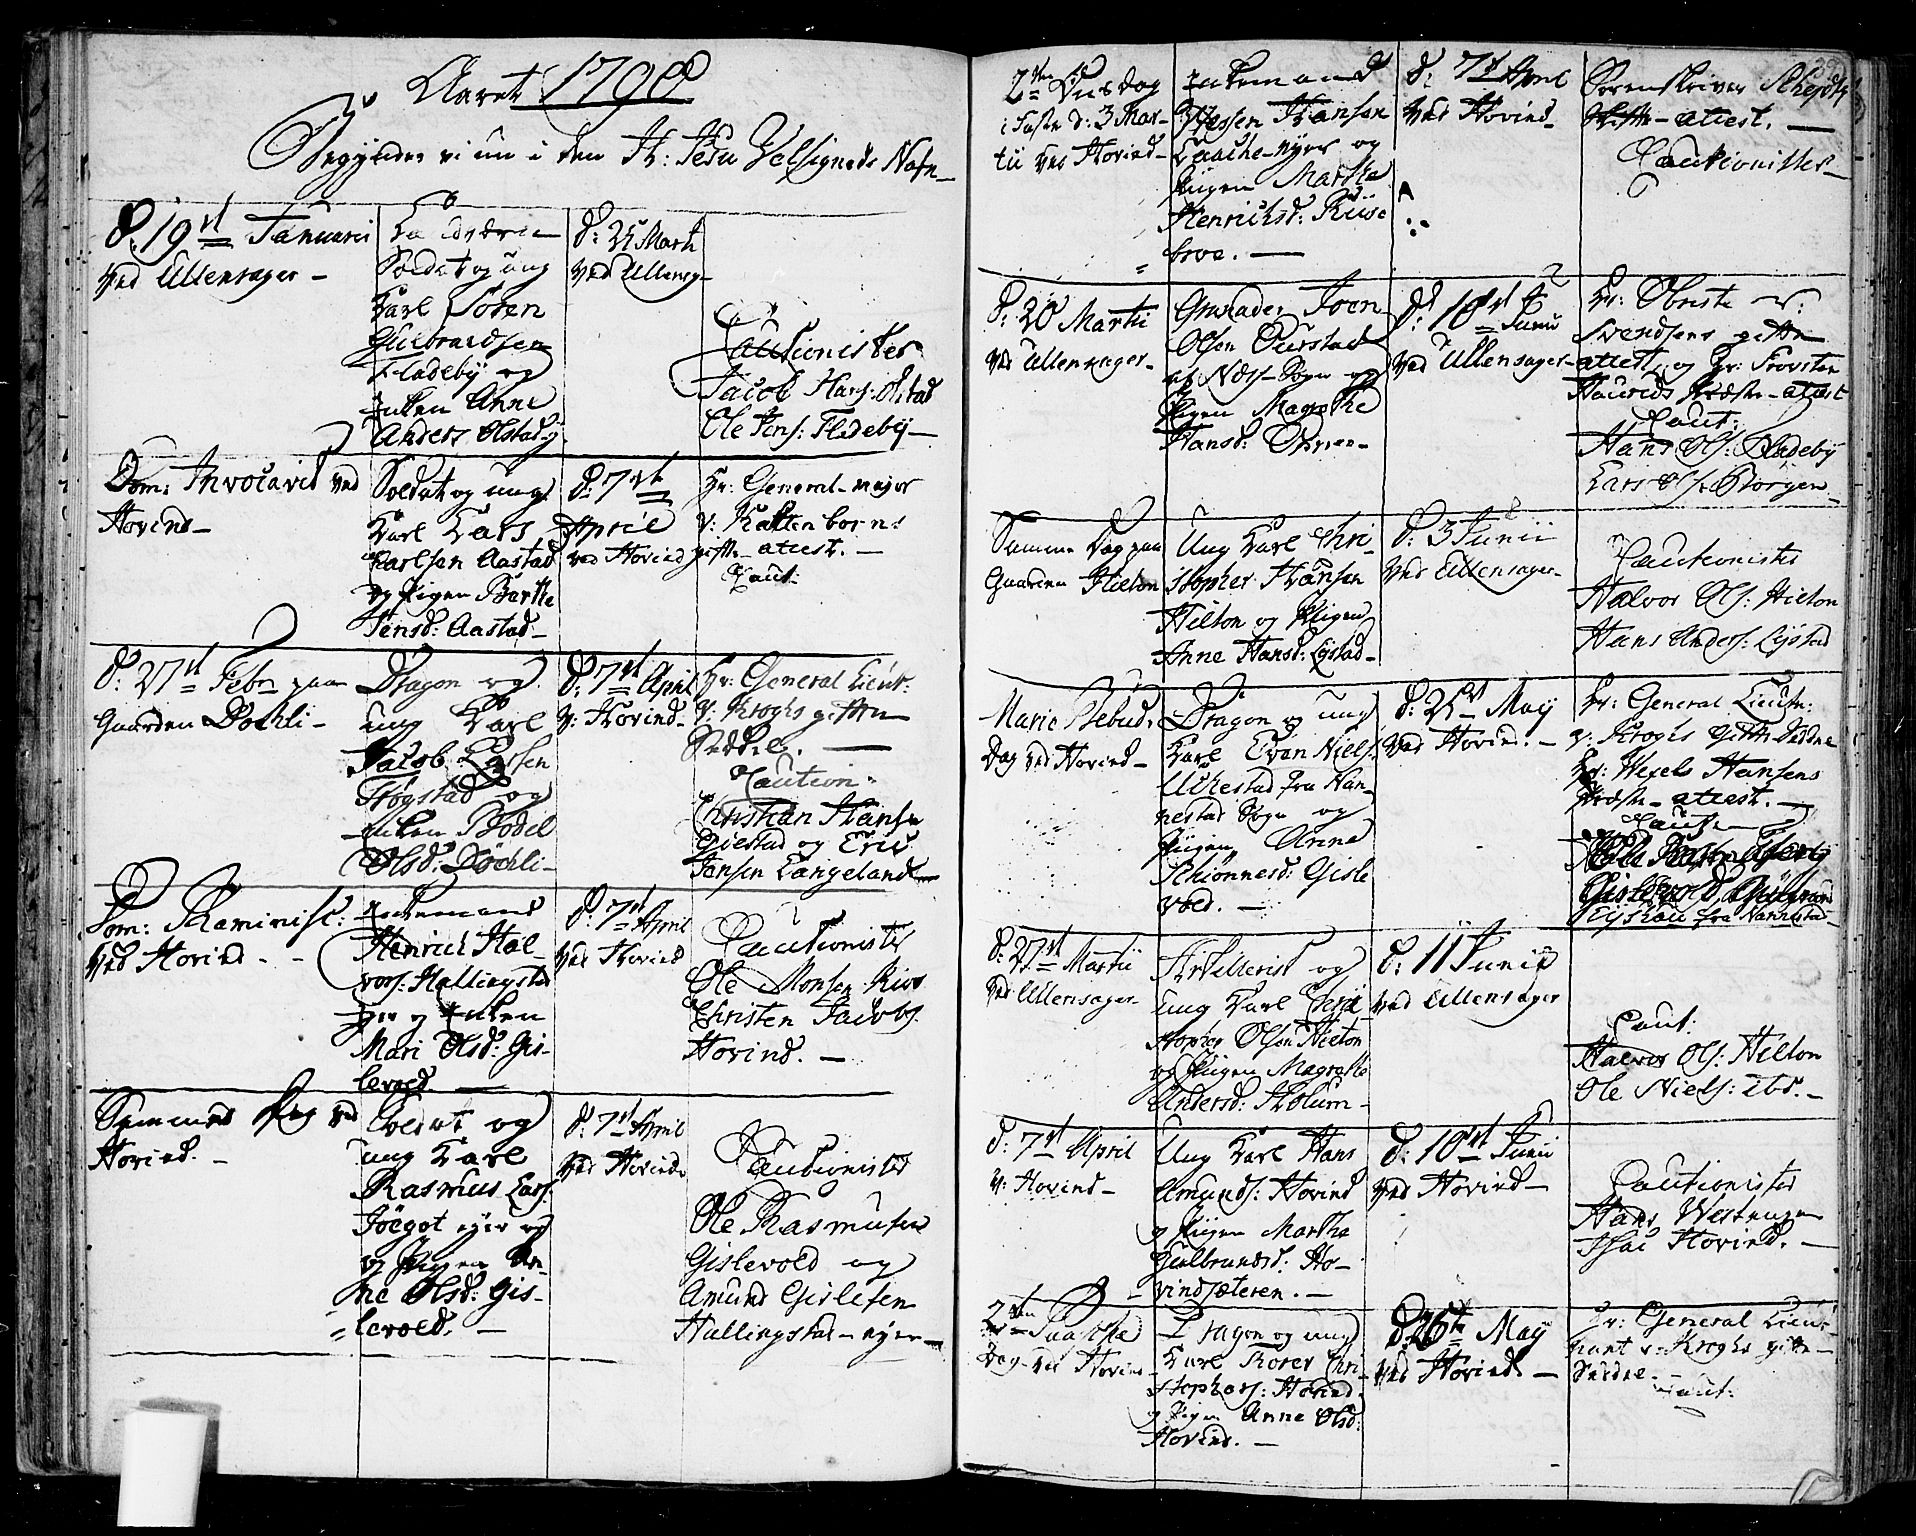 Aaret 1790
Begyndes vi nu i den H: Jesu Velsignede Nafn
D: 19de Januarii
ved Ullensager
Soldat og ung
Karl Søren
Gulbrandsen
Fladeby og
Enken Anne
Anders Olstad
D: 25 Marti
ved Ullensag
Cautionister
Jacob Hans: Olstad
Ole Jens: Fladeby
Dom: Invocavit ved
Hovind
Soldat og ung
Karl Lars
Karlsen Aastad
og Pigen Barthe
Jensd: Aastad
D: 7de
April
ved Hovind
Hr: General-major
v: Kaltenborns
gifte-attest.
Caut:
D: 27de Febr paa
Gaarden Døchli
Dragon og
ung Karl
Jacob Larsen
Frøgstad og
Enken Bodel
Olsd: Døchli
D: 7de April
v: Hovind
Hr: General Lieut:
v: Kroghs giftte
Seddel.
Caution:
Christian Hanse
Gielstad og Eric
Jansen Langeland
Dom: Reminisc:
ved Hovind
Enkemand
Henrich Hal-
vors: Hallingstad
eyer og Enken
Mari Olsd: Gis-
levold.
D: 7de April
ved Hovind
Cautionister
Ole Monsen Riis
Christen Jacobs
Hovind.
Sammes Dag ved
Hovind.
Soldat og
ung Karl
Rasmus Lars:
Jøegot eyer og
og Pigen An-
ne Olsd: Gis-
levold.
D: 7de April
ved Hovind
Cautionister
Ole Rasmusen
Gislevold og
Amund Gislesen
Hallingstad-eyer
2den Tiisdag
i Faste d: 3 Mar-
tii ved Hovind
Enkemand
Jessen Hansen
Laache-eyer og
Pigen Martha
Henrichsd: Riise
broe.
D: 7de April
ved Hovind
Sorenskriver Scheydts
attest.
Cautionister
D: 20 Martii
ved Ullensager
Grenader Joen
Olsen Durstad
af Næss-Sogn og
Pigen Magrethe
Hansd:
D: 10de Junii
ved Ullensager
Hr: Obriste v:
Svendsens giftte
attest, og Hr: Provsten
Haurids Præste-attest
Caut:
Hans Ols: Fladeby
Lars Ols: Borgen
Samme Dag paa
Gaarden Hielton
Ung Karl Chri-
stopher Hansen
Hilton og Pigen
Anne Hansd: Lystad
D: 3 Junii
ved Ullensager
Cautionister
Halvor Ols: Hilton
Hans Anders: Lystad
Marie Bebud:
Dag ved Hovind
Dragon og ung
Karl Even Niels:
Ukkestad fra Nan-
nestad Sogn og
Pigen Anne
Schiønnesd: Gisle
vold.
D: 25de Maij
ved Hovind.
Hr: General Lieutn:
v: Kroghs Gifte-Seddel
Hr: Wexels Hansens
Præste-attest.
Caut:
fra Nannestad
D: 27de Martii
ved Ullensager
Artillerist og
ung Karl Chri-
stopher Olsen Hielton
og Pigen Magrethe
Andersd: Holum
D: 11 Junii
ved Ullensager
Caut:
Halvor Ols: Hilton
Ole Niels: ibd.
D: 7de April
v: Hovind
Ung Karl Hans
Amunds: Hovind
og Pigen Martha
Gulbrandsd: Ho-
vindsæteren.
D: 10de Junii
ved Hovind
Cautionister
Hans Westengen
Isac Hovind.
2den Paaske
Dag ved Hovind
Dragon og ung
Karl Torer Chri-
stophers: Hovind
og Pigen Anne Olsd:
Hovind.
D: 26te Maij
ved Hovind
Hr: General Lieut-
nant v: Kroghs gifte
Seddel.
Caut: